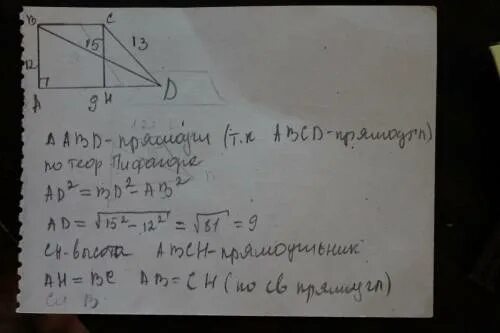 B C
15 13
12
A 9 H D
Δ ABD - прямоугн (т.к ABCD - прямоугл)
по теор Пифагора
AD² = BD² - AB²
AD = √15² - 12² = √81 = 9
CH - высота ABCH - прямоугльник
AH = BC AB = CH (по св прямоугл)